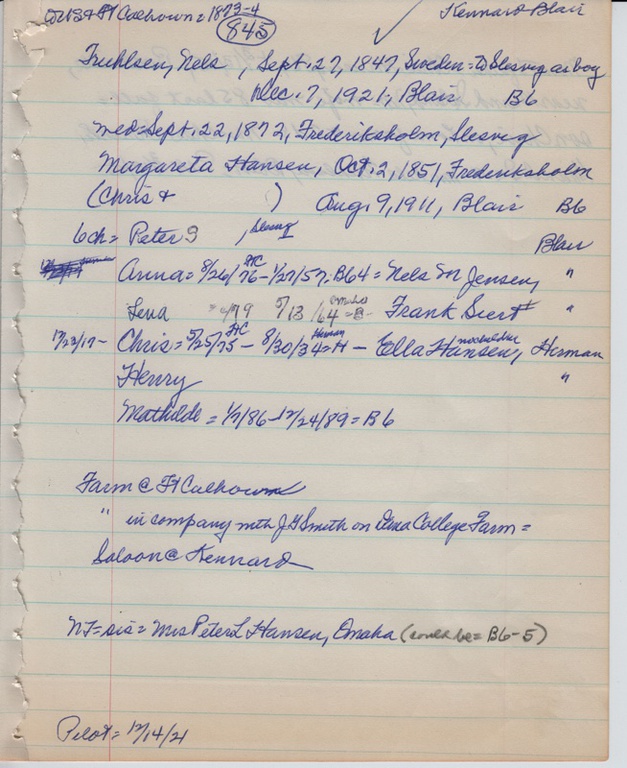 Calhoun = 1873-4
845
Kennard Blair
Truhlsen, Nels, Sept. 27, 1847, Sweden = to Slesvig as boy
Dec. 7, 1921, Blair B6
med = Sept. 22, 1872, Frederiksholm, Slesvig
Margareta Hansen, Oct. 2, 1851, Frederiksholm
(Chris + ) Aug 9, 1911, Blair B6
6 ch = Peter S , Slesvig Blair
Anna = 8/26/76 FTC - 1/27/57 - B64 = Nels M Jensen, "
Lena 79 5/13/64 Omaha = B - Frank Siert "
12/23/17 - Chris = 5/25/75 FTC - 8/30/34 = H Herman - Ella Hansen, no children Herman
Henry "
Mathilde = 1/7/86 - 12/24/89 = B6
Farm @ Ft Calhoun
" in company with J G Smith on Dana College Farm =
Saloon @ Kennard
NT = sis = Mrs Peter L Hansen, Omaha (could be = B6-5)
Pilot = 12/14/21